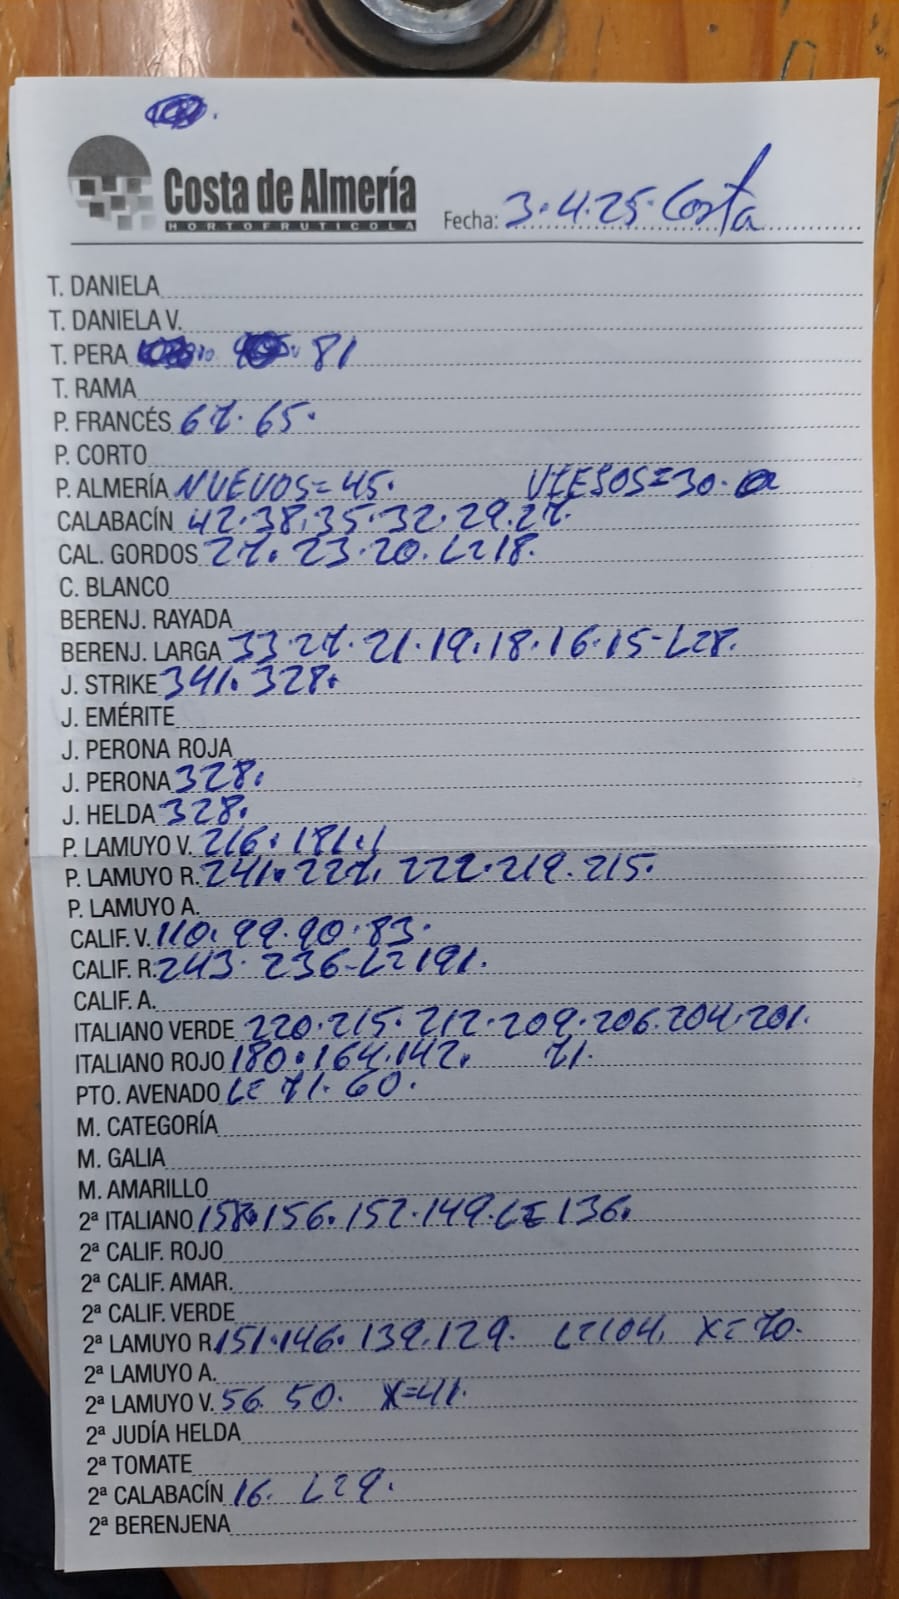 Costa de Almería
HORTOFRUTICOLA
Fecha: 3.4.25. Costa
T. DANIELA
T. DANIELA V.
T. PERA 81
T. RAMA
P. FRANCÉS 67. 65.
P. CORTO
P. ALMERÍA NUEVOS=45. VIEJOS=30.
CALABACÍN 42.38.35.32.29.27.
CAL. GORDOS 27. 23.20. L=18.
C. BLANCO
BERENJ. RAYADA
BERENJ. LARGA 33.27.21.19.18.16.15-L=8.
J. STRIKE 341. 328.
J. EMÉRITE
J. PERONA ROJA
J. PERONA 328.
J. HELDA 328.
P. LAMUYO V. 216. 181.
P. LAMUYO R. 241. 227. 222.219.215.
P. LAMUYO A.
CALIF. V. 110. 99.90.83.
CALIF. R. 243. 236-L=191.
CALIF. A.
ITALIANO VERDE 220.215.212.209.206.204.201.
ITALIANO ROJO 180.164.142. 71.
PTO. AVENADO L= 71. 60.
M. CATEGORÍA
M. GALIA
M. AMARILLO
2ª ITALIANO 158.156.152.149.L=136.
2ª CALIF. ROJO
2ª CALIF. AMAR.
2ª CALIF. VERDE
2ª LAMUYO R. 151.146.139.129. L=104. X=70.
2ª LAMUYO A.
2ª LAMUYO V. 56. 50. X=41.
2ª JUDÍA HELDA
2ª TOMATE
2ª CALABACÍN 16. L=9.
2ª BERENJENA